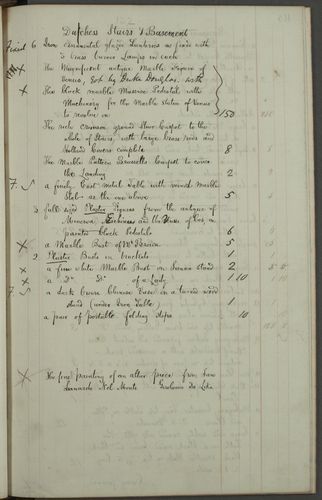 Dutchess Stairs & Basement
6 Iron Ornamental glazed Lanterns as fixed with
3 brass burner Lamps in each
X The Magnificent antique Marble Figure of
Venus, Sold by Duke Douglas, with
the black marble Massive Pedestal with
Machinery for the Marble statue of Venus
to revolve on 150
The rich crimson ground Stair Carpet to the
Stairs, with large Brass rods and
Holland Covers complete 8
The Marble Pattern Brussells Carpet to cover
the Landing 2
7. S a finely Cast metal Table with veined Marble
Slab as the one above 5 4
3 full sized Plaster Figures from the antique of
Minerva and the Venus of Cos, on
painted Block Pedestals 6
X a Marble Bust of Mr Perceval 5
2 Plaster Busts on brackets 1
X a fine white Marble Bust on Scream stand 2 5
X a Do Do of a Lady 1 10
7 S a dark bronze Chinese Vase on a turned wood
stand (under Iron Table) 1
a pair of portable folding steps 10
X The fine painting of an altar piece from San
Leonardo Nel Monte Girolamo Da